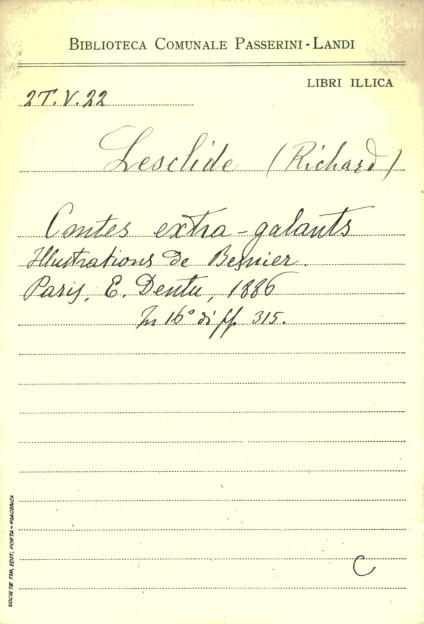 BIBLIOTECA COMUNALE PASSERINI-LANDI
LIBRI ILLICA
2T.V.22
Lesclide (Richard)
Contes extra-galants
Illustrations de Besnier.
Paris, E. Dentu, 1886
In 16° di ff. 315.
C
SOCIETÀ TIP. EDIT. PORTA - PIACENZA